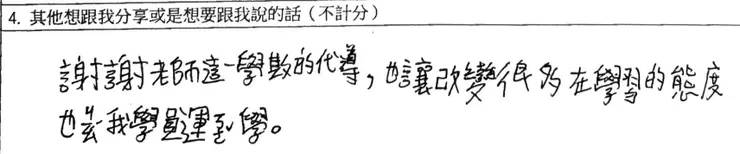 4. 其他想跟我分享或是想要跟我說的話（不計分）
謝謝老師這一學期的代導，也讓改變很多在學習的態度
也 我學 運到學。